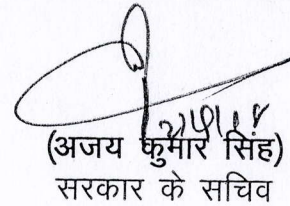 (अजय कुमार सिंह)
सरकार के सचिव